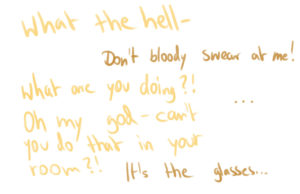 What the hell-
Don't bloody swear at me!
What are you doing?!
...
Oh my god - can't
you do that in your
room?!
It's the glasses...